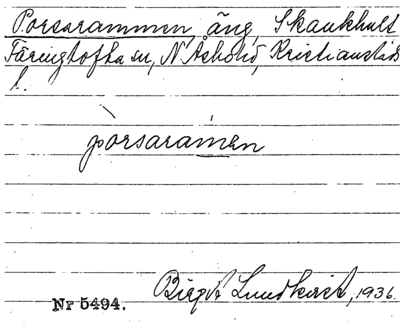 Porsarammen, äng, Skankhult
Färingtofta sn, N. Åsbohd, Kristianstads
l.
pòrsaramen
Birgit Lundkvist, 1936.
Nr 5494.